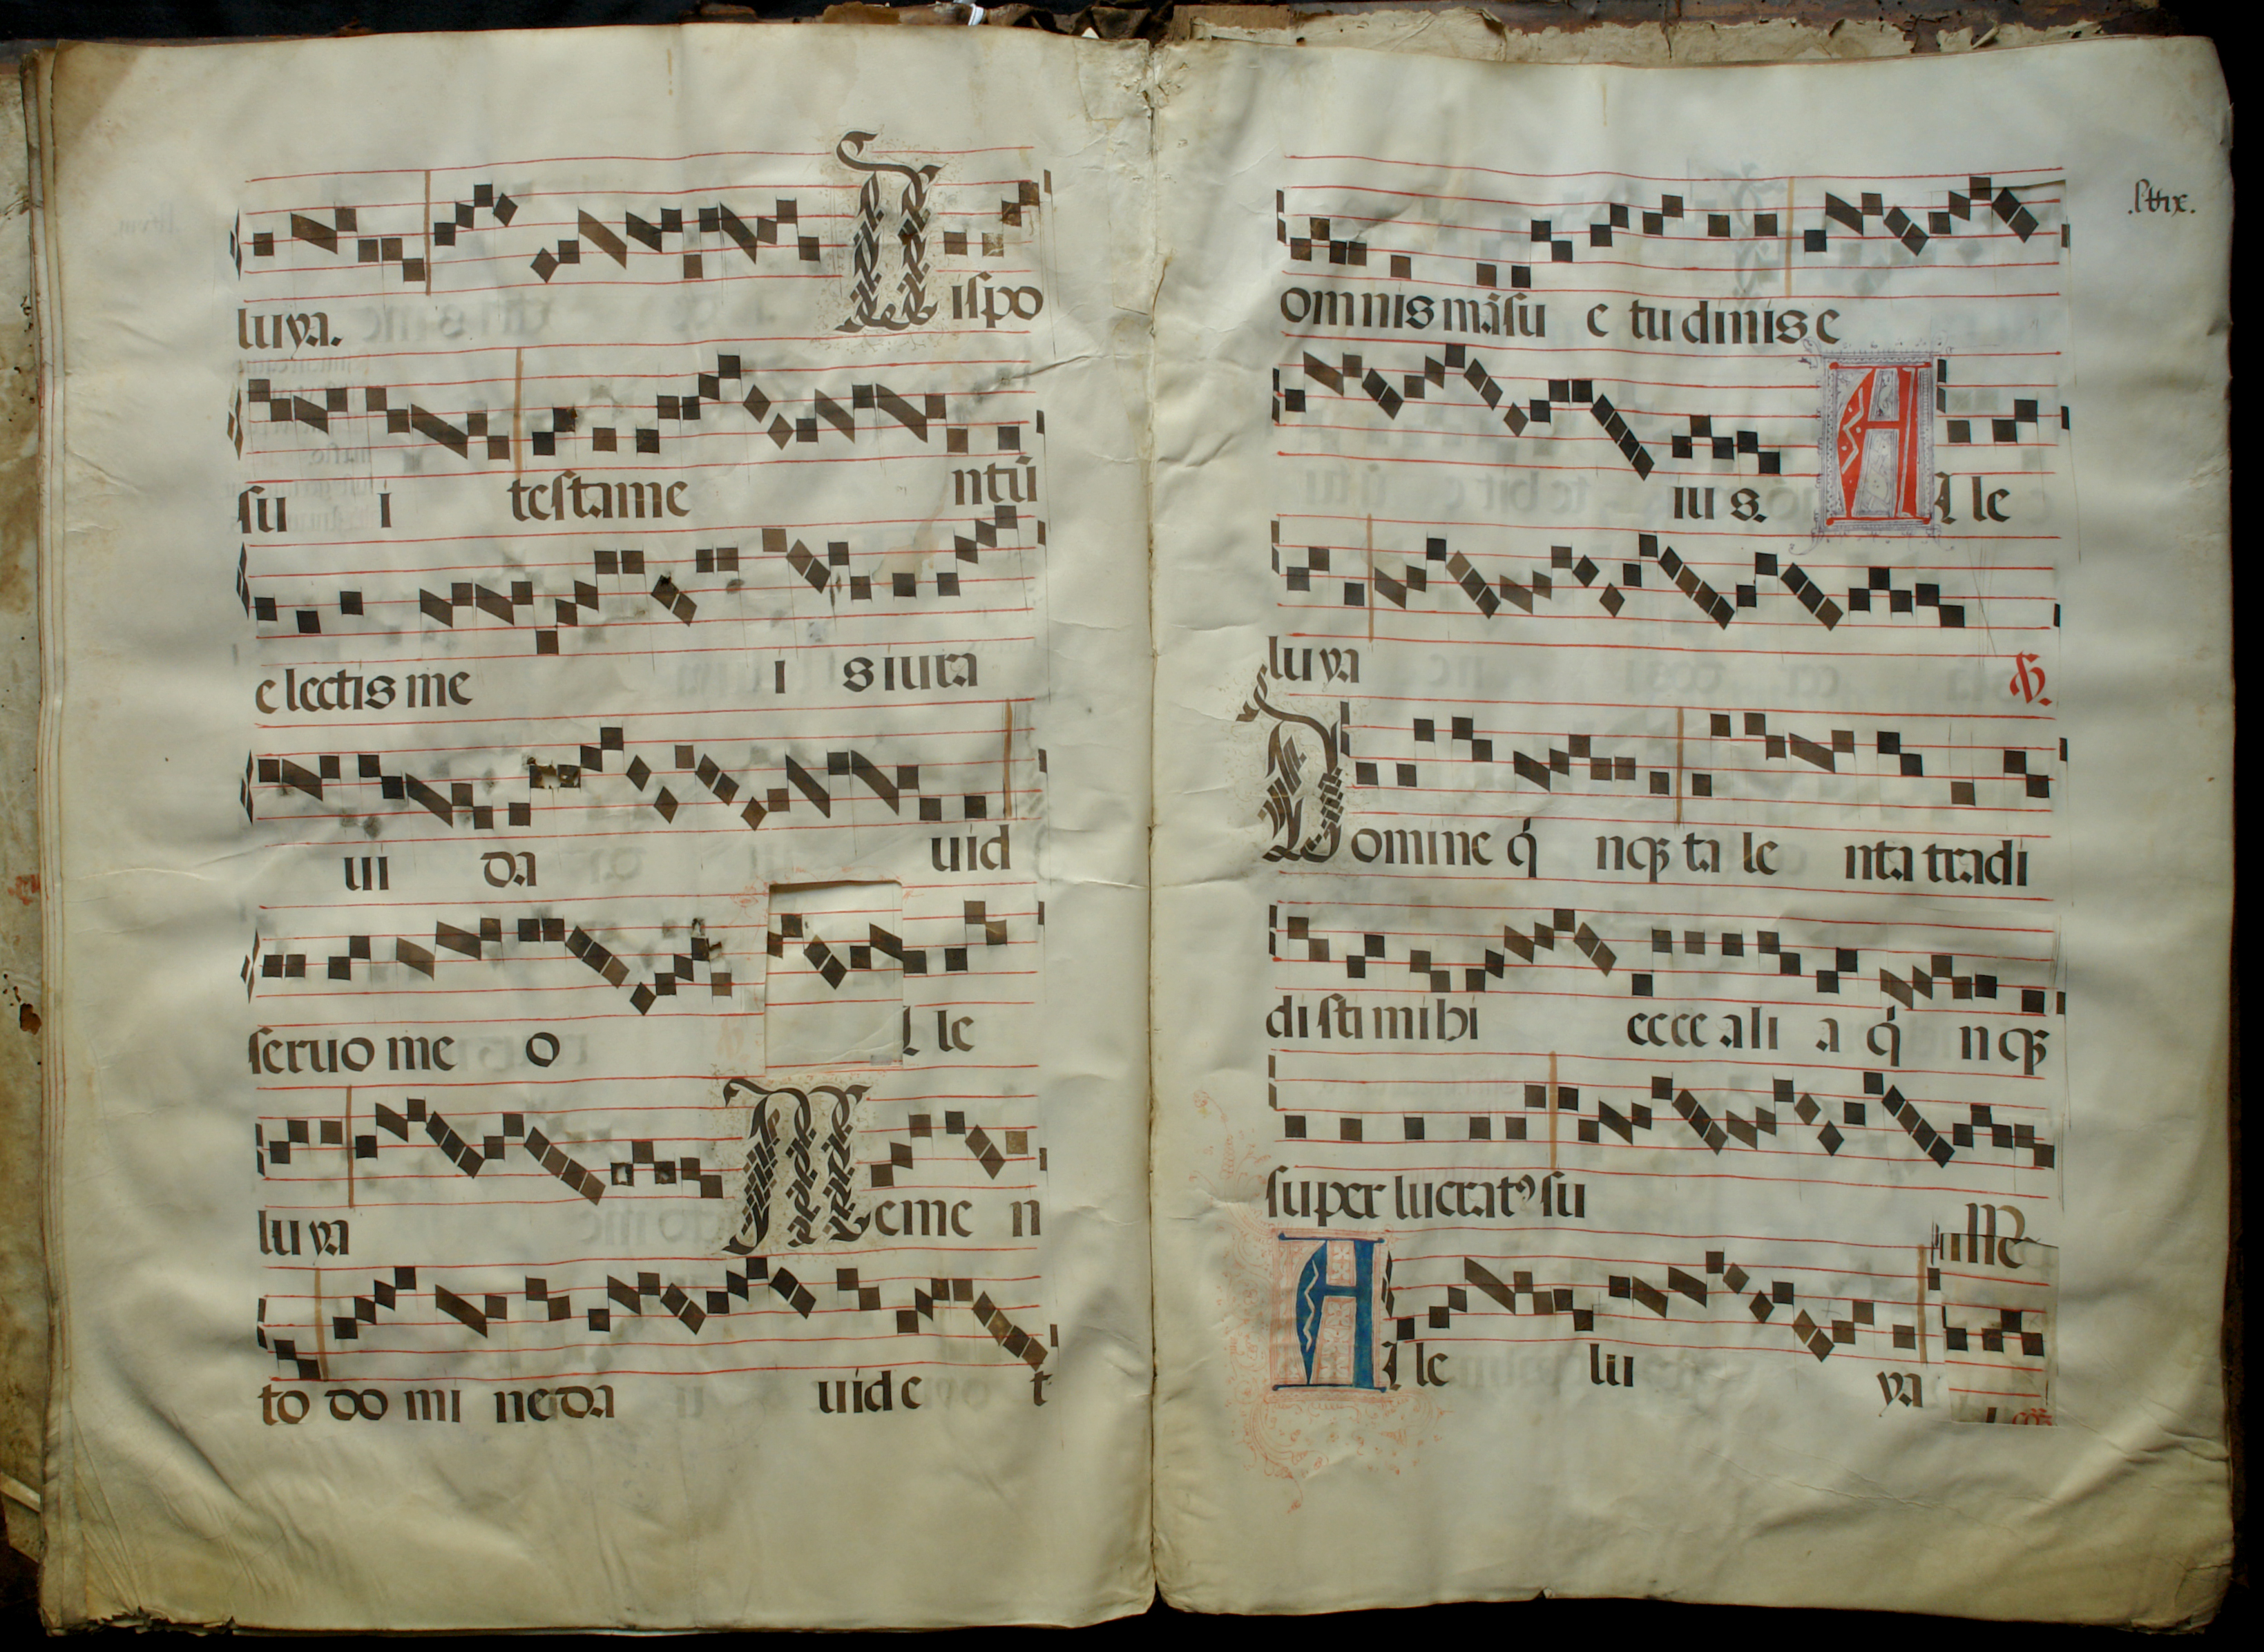 luya. Dispo
su i testame ntū
electis me i s iura
ui da uid
seruo me o Ale
luya Meme n
to do mi ne da uid e t
.lxix.
omnis māsu e tudinis e
iu s. Ale
luya ℣.
Domine q̇ nq3 ta le nta tradi
disti mihi ecce ali a q̇ nq3
super lucratꝰ su
Ale lu ya